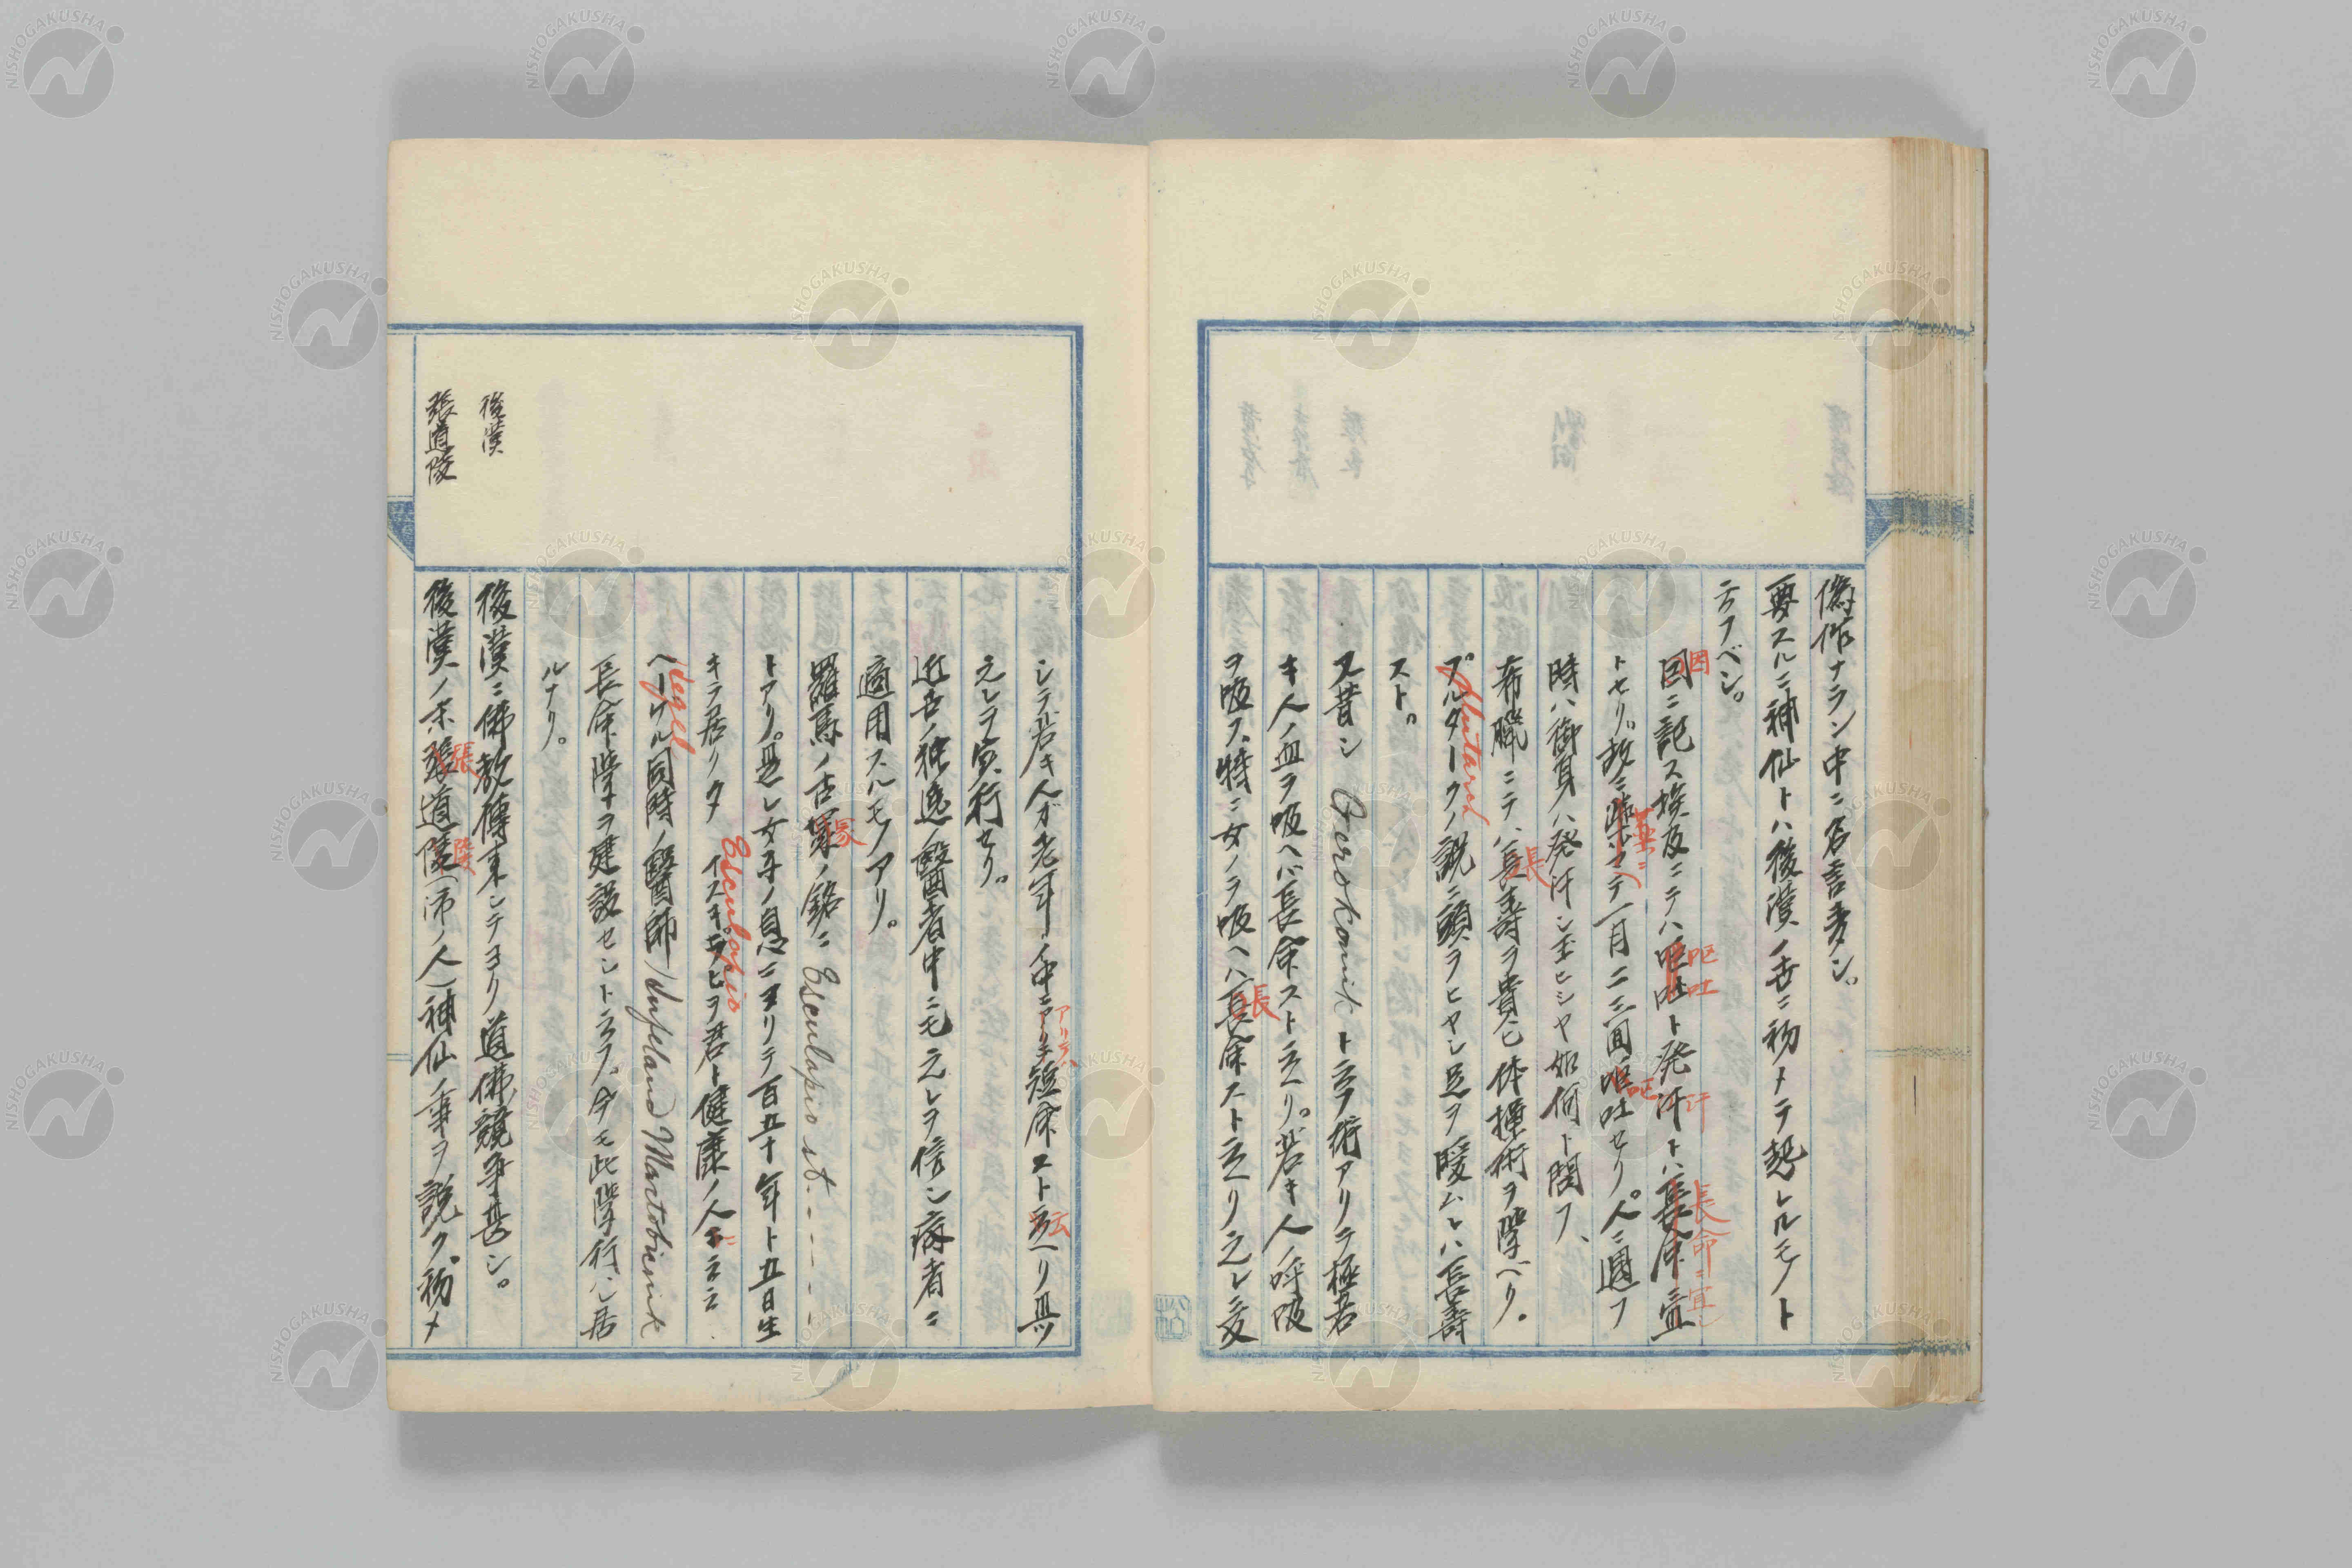 偽作ナラン中ニ名言多シ。
要スルニ神仙トハ後漢ノ世ニ初メテ起レルモノト
云フベシ。
因ニ記ス埃及ニテハ嘔吐ト発汗トハ長命ニ宜シ
トセリ。故ニ薬ニテ一月ニ二三回嘔吐セリ。人ニ遇フ
時ハ御身ハ発汗シ玉ヒシヤ如何ト問フ、
希臘ニテハ長壽ヲ貴ヒ体操術ヲ学ベリ。
プルタークノ説ニ頭ヲヒヤシ足ヲ暖ムレハ長壽
スト。
又昔シ Gerokomik ト云フ術アリテ極若
キ人ノ血ヲ吸ヘバ長命スト云ヘリ。若キ人ノ呼吸
ヲ吸ス、特ニ女ノヲ吸ヘハ長命スト云ヘリ之レニ反
シテ若キ人ガ老年ノ中ニアリテハ短命スト云ヘリ且ツ
之レヲ実行セリ。
近古ノ独逸ノ醫者中ニモ之レヲ信シ病者ニ
適用スルモノアリ。
羅馬ノ古塚ノ銘ニ Esculapio st. - - - -
トアリ。是レ女子ノ息ニヨリテ百五十年ト五日生
キテ居リタ
ヘーゲル同時ノ醫師 Hufeland Martobienik
長命学ヲ建設セントス云フ。今モ此学行ハレ居
ルナリ。
後漢
後漢ニ佛教傳来シテヨリ道佛競争甚シ。
張道陵
後漢ノ末張道陵(沛ノ人)神仙ノ事ヲ説ク。初メ
因
嘔吐
汗
長命ニ宜シ
長
張
陵
アリテハ
云
塚
Esculapio
Hegel
Plutarch
NISHOGAKUSHA